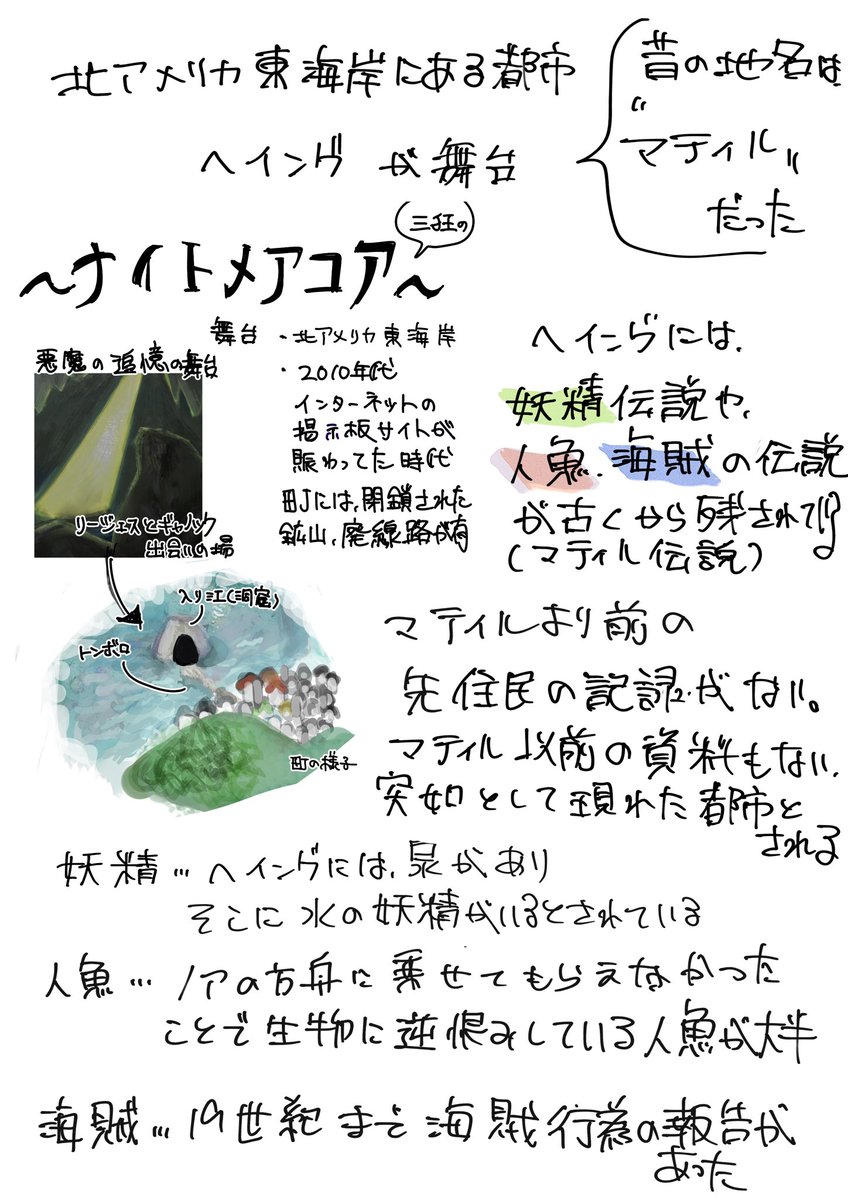 北アメリカ東海岸にある都市
ヘイングが舞台
昔の地名は
"マティル"
だった
三狂の
～ナイトメアコア～
舞台
・北アメリカ東海岸
・2010年代
インターネットの
掲示板サイトが
賑わってた時代
町には、閉鎖された
鉱山、廃線路が有
悪魔の追憶の舞台
リージェスとギャノック
出会いの場
入り江(洞窟)
トンボロ
町の様子
ヘイングには、
妖精伝説や、
人魚、海賊の伝説
が古くから残されてい
(マティル伝説)
マティルより前の
先住民の記録がない。
マティル以前の資料もない、
突如として現れた都市と
される
妖精…ヘイングには、泉があり
そこに水の妖精がいるとされている
人魚…ノアの方舟に乗せてもらえなかった
ことで生物に逆恨みしている人魚が大半
海賊…19世紀まで海賊行為の報告が
あった